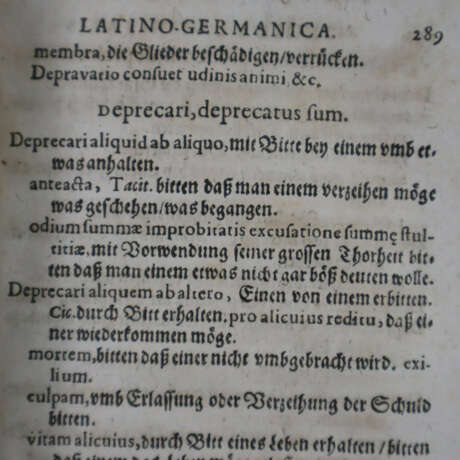 LATINO-GERMANICA. 289
membra, die Glieder beschädigen/verrücken.
Depravatio consuetudinis animi &c.
Deprecari, deprecatus sum.
Deprecari aliquid ab aliquo, mit Bitte bey einem vmb et-
was anhalten.
anteacta, Tacit. bitten daß man einem verzeihen möge
was geschehen/was begangen.
odium summæ improbitatis excusatione summę stul-
titiæ, mit Vorwendung seiner grossen Thorheit bit-
ten daß man einem etwas nicht gar böß deuten wolle.
Deprecari aliquem ab altero, Einen von einem erbitten.
Cic. durch Bitt erhalten, pro alicuius reditu, daß ei-
ner wiederkommen möge.
mortem, bitten daß einer nicht vmbgebracht wird. exi-
lium.
culpam, vmb Erlassung oder Verzeihung der Schuld
bitten.
vitam alicuius, durch Bitt eines Leben erhalten/bitten